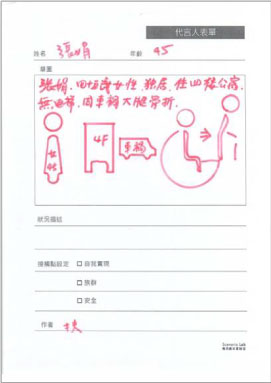 代言人表單
姓名 張娟 年齡 45
草圖
張娟，四切，女性，獨居，住四樓公寓，
無電梯，因車禍大腿骨折。
女性
4F
車禍
狀況描述
接觸點設定 □ 自我實現
□ 族群
□ 安全
作者
Scenario Lab